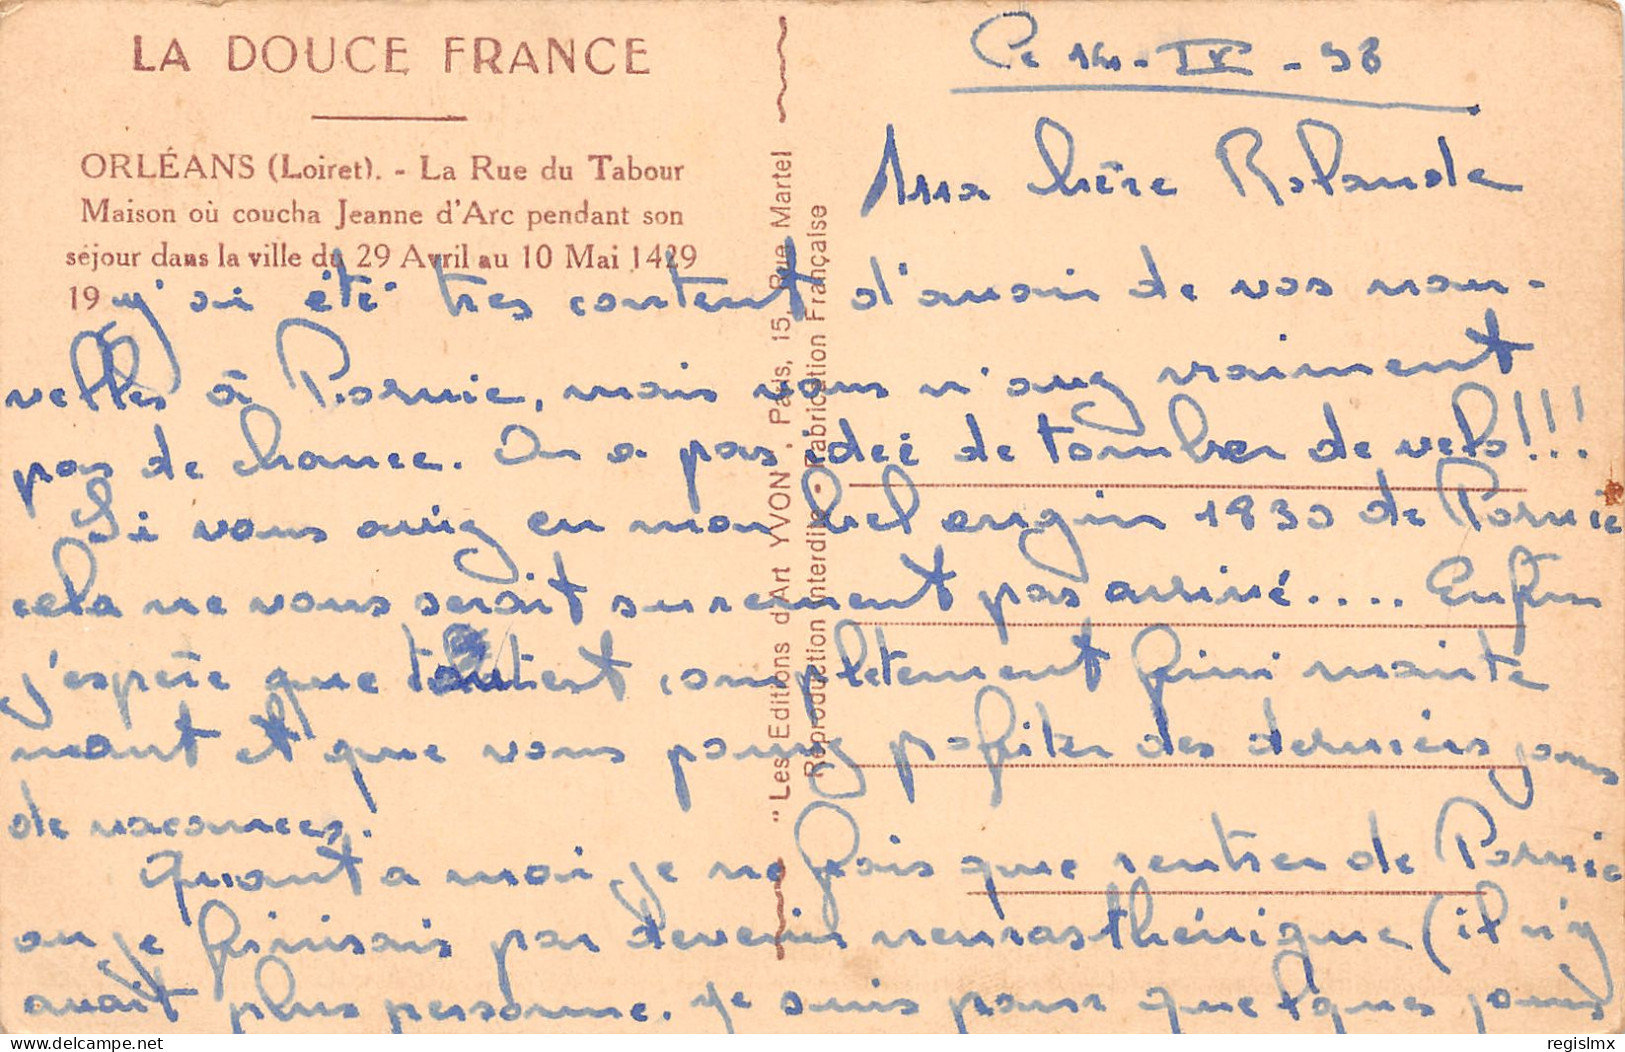 LA DOUCE FRANCE
ORLÉANS (Loiret). - La Rue du Tabour
Maison où coucha Jeanne d'Arc pendant son
séjour dans la ville du 29 Avril au 10 Mai 1429
19
"Les Editions d'Art YVON", Paris, 15, Rue Martel
Reproduction Interdite - Fabrication Française
Ce 14 - IX - 38
Ma chère Rolande
J'ai été très content d'avoir de vos nou-
velles à Pornic, mais vous n'avez vraiment
pas de chance. On a pas ideé de tomber de velo!!!
Si vous aviez eu mon bel engin 1830 de Pornic
cela ne vous serait surement pas arrivé.... Enfin
j'espère que tout est completement fini mainte
nant et que vous pouvez profiter des derniers jours
de vacances.
Quant a moi je ne fais que rentrer de Pornic
ou je finissais par devenir neurasthénique (il n'y
avait plus personne. Je suis pour quelques jours
Delcampe.net
regislmx